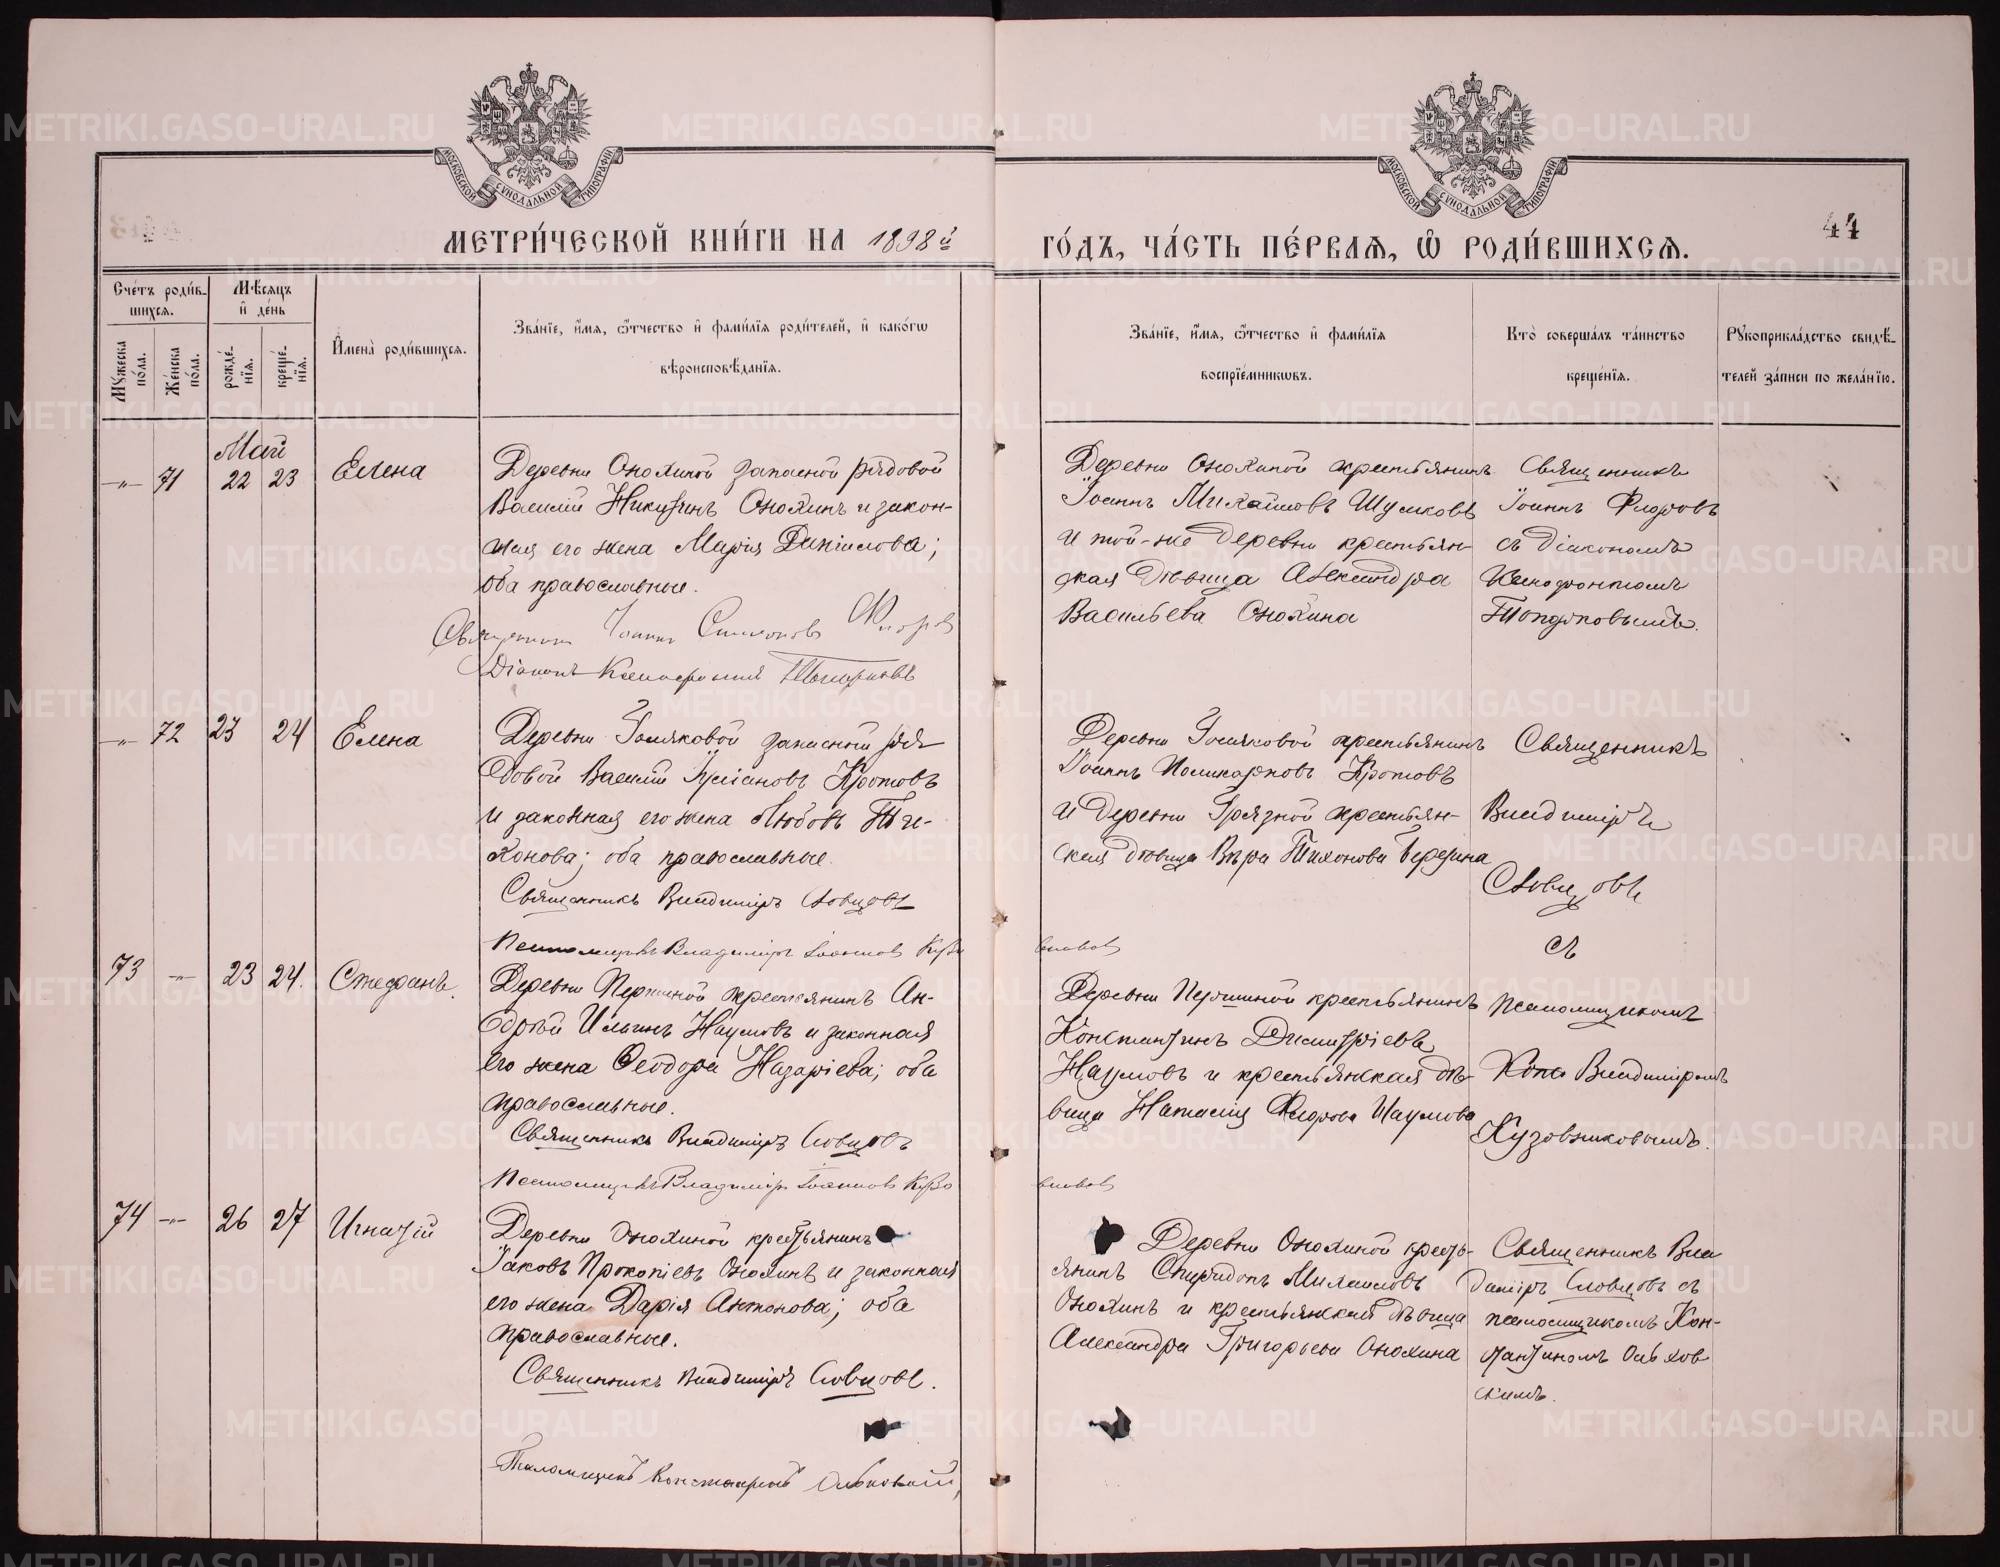 МОСКОВСКОЙ СѴНОДАЛЬНОЙ ТИПОГРАФІИ
МОСКОВСКОЙ СѴНОДАЛЬНОЙ ТИПОГРАФІИ
МЕТРИ́ЧЕСКОЙ КНИ́ГИ НА 1898й
ГО́ДЪ, ЧА́СТЬ ПЕ́РВАѦ, Ѽ РОДИ́ВШИХСѦ.
44
Сче́тъ роди́в-
шихсѧ.
Мѣ́сѧцъ
и҆ де́нь
Мꙋ́жеска по́ла.
Же́нска по́ла.
рожде́-
нїѧ.
креще́-
нїѧ.
И҆мена̀ роди́вшихсѧ.
Зва́нїе, и҆́мѧ, ѻ҆́тчество и҆ фами́лїѧ роди́телей, и҆ како́гѡ
вѣроисповѣ́данїѧ.
Зва́нїе, и҆́мѧ, ѻ҆́тчество и҆ фами́лїѧ
воспрїе́мникѡвъ.
Кто̀ соверша́лъ та́инство
креще́нїѧ.
Рꙋкоприкла́дство свидѣ́-
телей за́писи по жела́нїю.
Май
-"- 71 22 23 Елена
Деревни Онохиной запасной рядовой
Василій Никитинъ Онохинъ и закон-
ная его жена Марія Даніилова;
оба православные.
Священникъ Іоаннъ Флоровъ
Діаконъ Ксенофонтъ Топорковъ
Деревни Онохиной крестьянинъ
Іоаннъ Михаиловъ Шумковъ
и той-же деревни крестьян-
ская дѣвица Александра
Васильева Онохина
Священникъ
Іоаннъ Флоровъ
съ діакономъ
Ксенофонтомъ
Топорковымъ.
-"- 72 23 24 Елена
Деревни Голяковой запасный ря-
довой Василій Кротовъ
и законная его жена Любовь Ти-
хонова; оба православные.
Священникъ Владиміръ Словцовъ
Псаломщикъ Владиміръ Іоанновъ Кузо
вниковъ
Деревни Голяковой крестьянинъ
Іоаннъ Поликарповъ Кротовъ
и деревни Грязной крестьян-
ская дѣвица Вѣра Тихонова Берсенева
Священникъ
Владиміръ
Словцовъ
съ
псаломщикомъ
Владиміромъ
Кузовниковымъ.
73 -"- 23 24. Стефанъ.
Деревни Першиной крестьянинъ Ан-
дрей Ильинъ Наумовъ и законная
его жена Ѳеодора Назаріева; оба
православные.
Священникъ Владиміръ Словцовъ
Псаломщикъ Владиміръ Іоанновъ Кузо
вниковъ
Деревни Першиной крестьянинъ
Константинъ Димитріевъ
Наумовъ и крестьянская дѣ-
вица Наталія Флорова Наумова
74 -"- 26 27 Игнатій
Деревни Онохиной крестьянинъ
Іаковъ Прокопіевъ Онохинъ и законная
его жена Дарія Антонова; оба
православные.
Священникъ Владиміръ Словцовъ.
Псаломщикъ Константинъ Ольховскій,
Деревни Онохиной кресть-
янинъ Спиридонъ Михаиловъ
Онохинъ и крестьянская дѣвица
Александра Григорьева Онохина
Священникъ Вла
диміръ Словцовъ съ
псаломщикомъ Кон-
стантиномъ Ольхов
скимъ.
METRIKI.GASO-URAL.RU